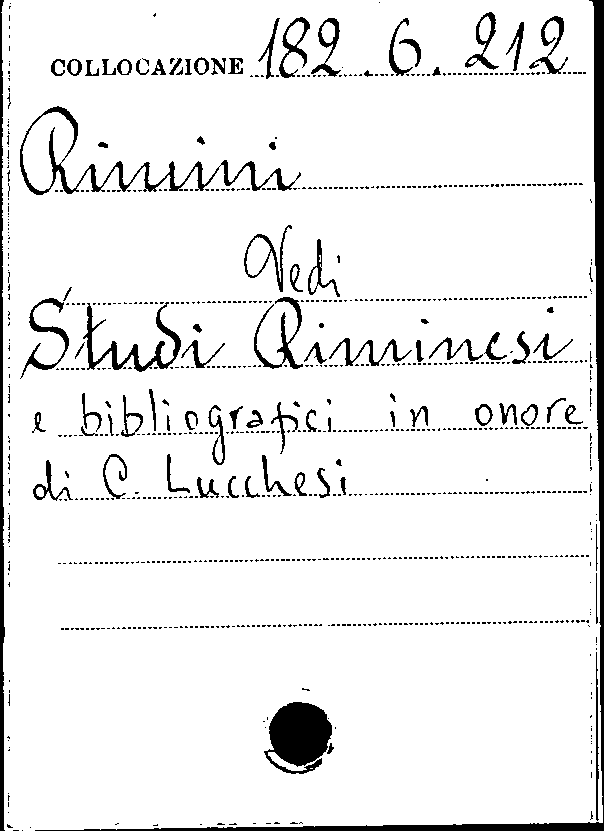 COLLOCAZIONE 182.6.212
Rimini
Vedi
Studi Riminesi
e bibliografici in onore
di C. Lucchesi